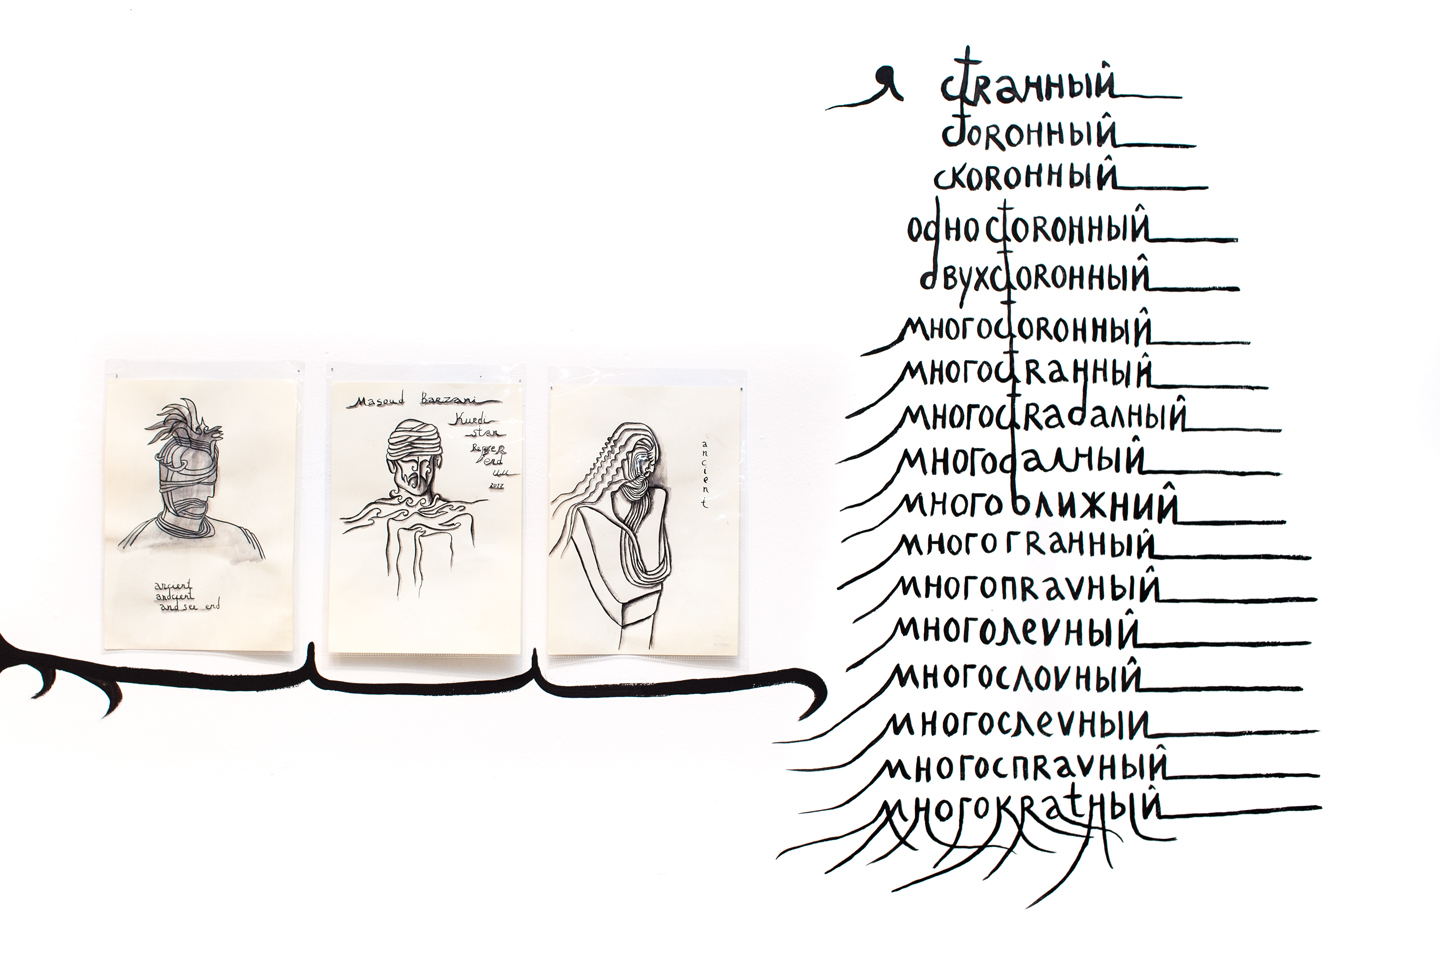 ancient
andcient
and see end
Masoud Barzani
Kurdi
stan
end
2017
ancient
я стRанный
стоRонный
скоRонный
одностоRонный
двухстоRонный
многостоRонный
многостRанный
многостRадалный
многодалный
многоближний
многогRанный
многопRаvный
многолеvный
многослоvный
многослеvный
многоспRаvный
многокRатный